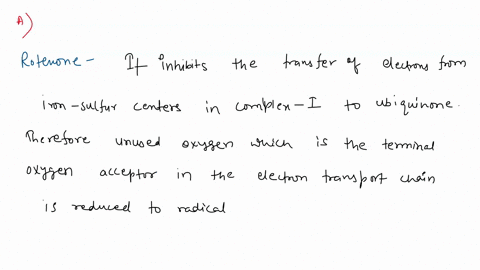 A)
Rotenone - It inhibits the transfer of electrons from
iron-sulfur centers in complex-I to ubiquinone.
Therefore unused oxygen which is the terminal
oxygen acceptor in the electron transport chain
is reduced to radical